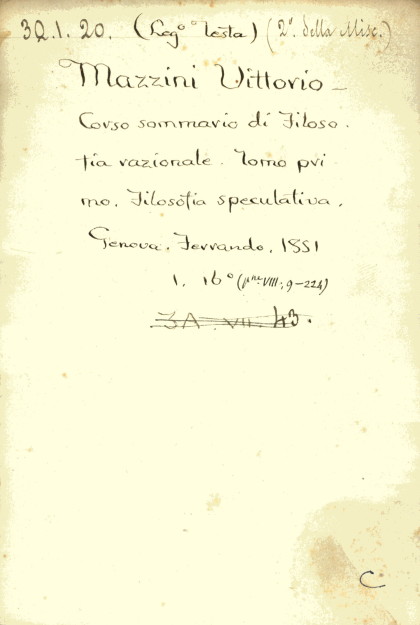 3Q.1.20. (Leg.º Testa) (2º. della Misc.)
Mazzini Vittorio –
Corso sommario di Filoso.
fia razionale. Tomo pri
mo. Filosofia speculativa.
Genova. Ferrando. 1851
1. 16º (pne VIII; 9-224)
3A. VII. 43.
C